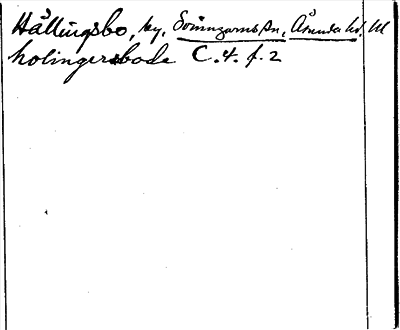 Hållingsbo, by, Svinngarns sn, Åsunda hd. Ul
holingersbode C. 4. f. 2